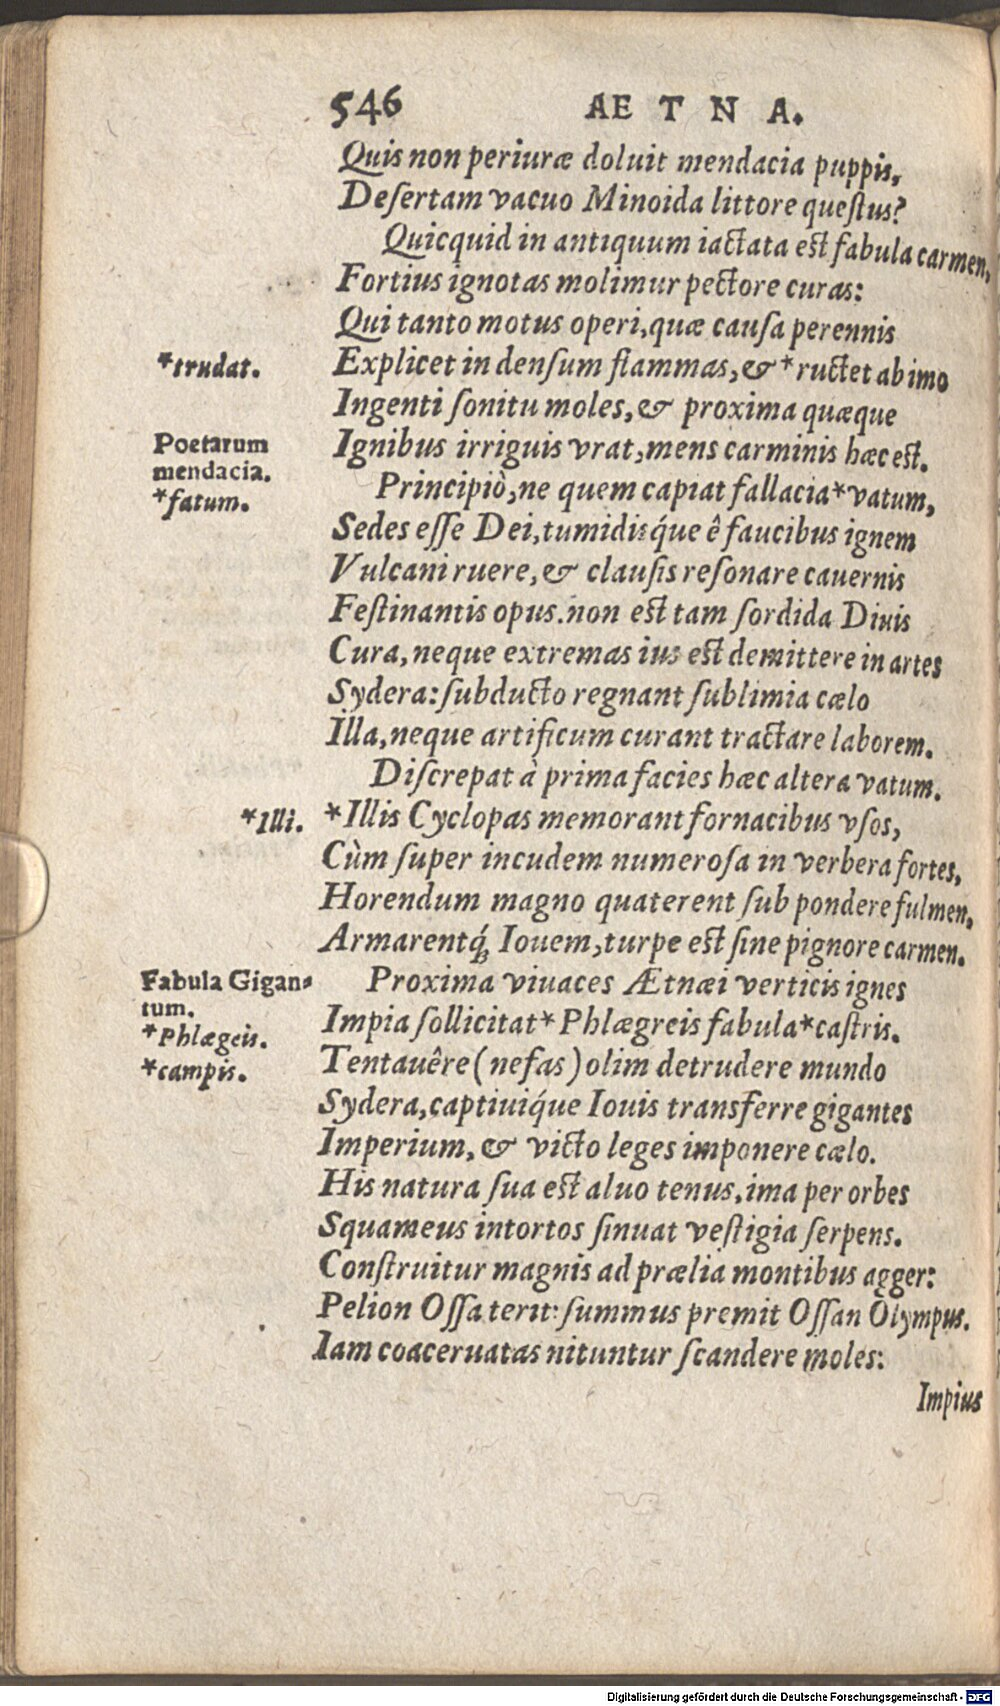 546 AETNA.
Quis non periuræ doluit mendacia puppis,
Deſertam vacuo Minoida littore queſtus?
Quicquid in antiquum iactata eſt fabula carmen,
Fortius ignotas molimur pectore curas:
Qui tanto motus operi, quæ cauſa perennis
*trudat. Explicet in denſum flammas, & *ructet ab imo
Ingenti ſonitu moles, & proxima quæque
Poetarum Ignibus irriguis vrat, mens carminis hæc eſt.
mendacia.
*fatum. Principiò, ne quem capiat fallacia *vatum,
Sedes eſſe Dei, tumidiśque ê faucibus ignem
Vulcani ruere, & clauſis reſonare cauernis
Feſtinantis opus. non eſt tam ſordida Diuis
Cura, neque extremas ius eſt demittere in artes
Sydera: ſubducto regnant ſublimia cælo
Illa, neque artificum curant tractare laborem.
Diſcrepat à prima facies hæc altera vatum.
*Illi. *Illis Cyclopas memorant fornacibus vſos,
Cùm ſuper incudem numeroſa in verbera fortes,
Horendum magno quaterent ſub pondere fulmen,
Armarentq́; Iouem, turpe eſt ſine pignore carmen.
Fabula Gigan- Proxima viuaces Ætnæi verticis ignes
tum.
*Phlægeis. Impia ſollicitat *Phlægreis fabula *caſtris.
*campis. Tentauêre (nefas) olim detrudere mundo
Sydera, captiuiq́ue Iouis transferre gigantes
Imperium, & victo leges imponere cælo.
His natura ſua eſt aluo tenus, ima per orbes
Squameus intortos ſinuat veſtigia ſerpens.
Conſtruitur magnis ad prælia montibus agger:
Pelion Oſſa terit: ſummus premit Oſſan Olympus.
Iam coaceruatas nituntur ſcandere moles:
Impius
Digitalisierung gefördert durch die Deutsche Forschungsgemeinschaft - DFG